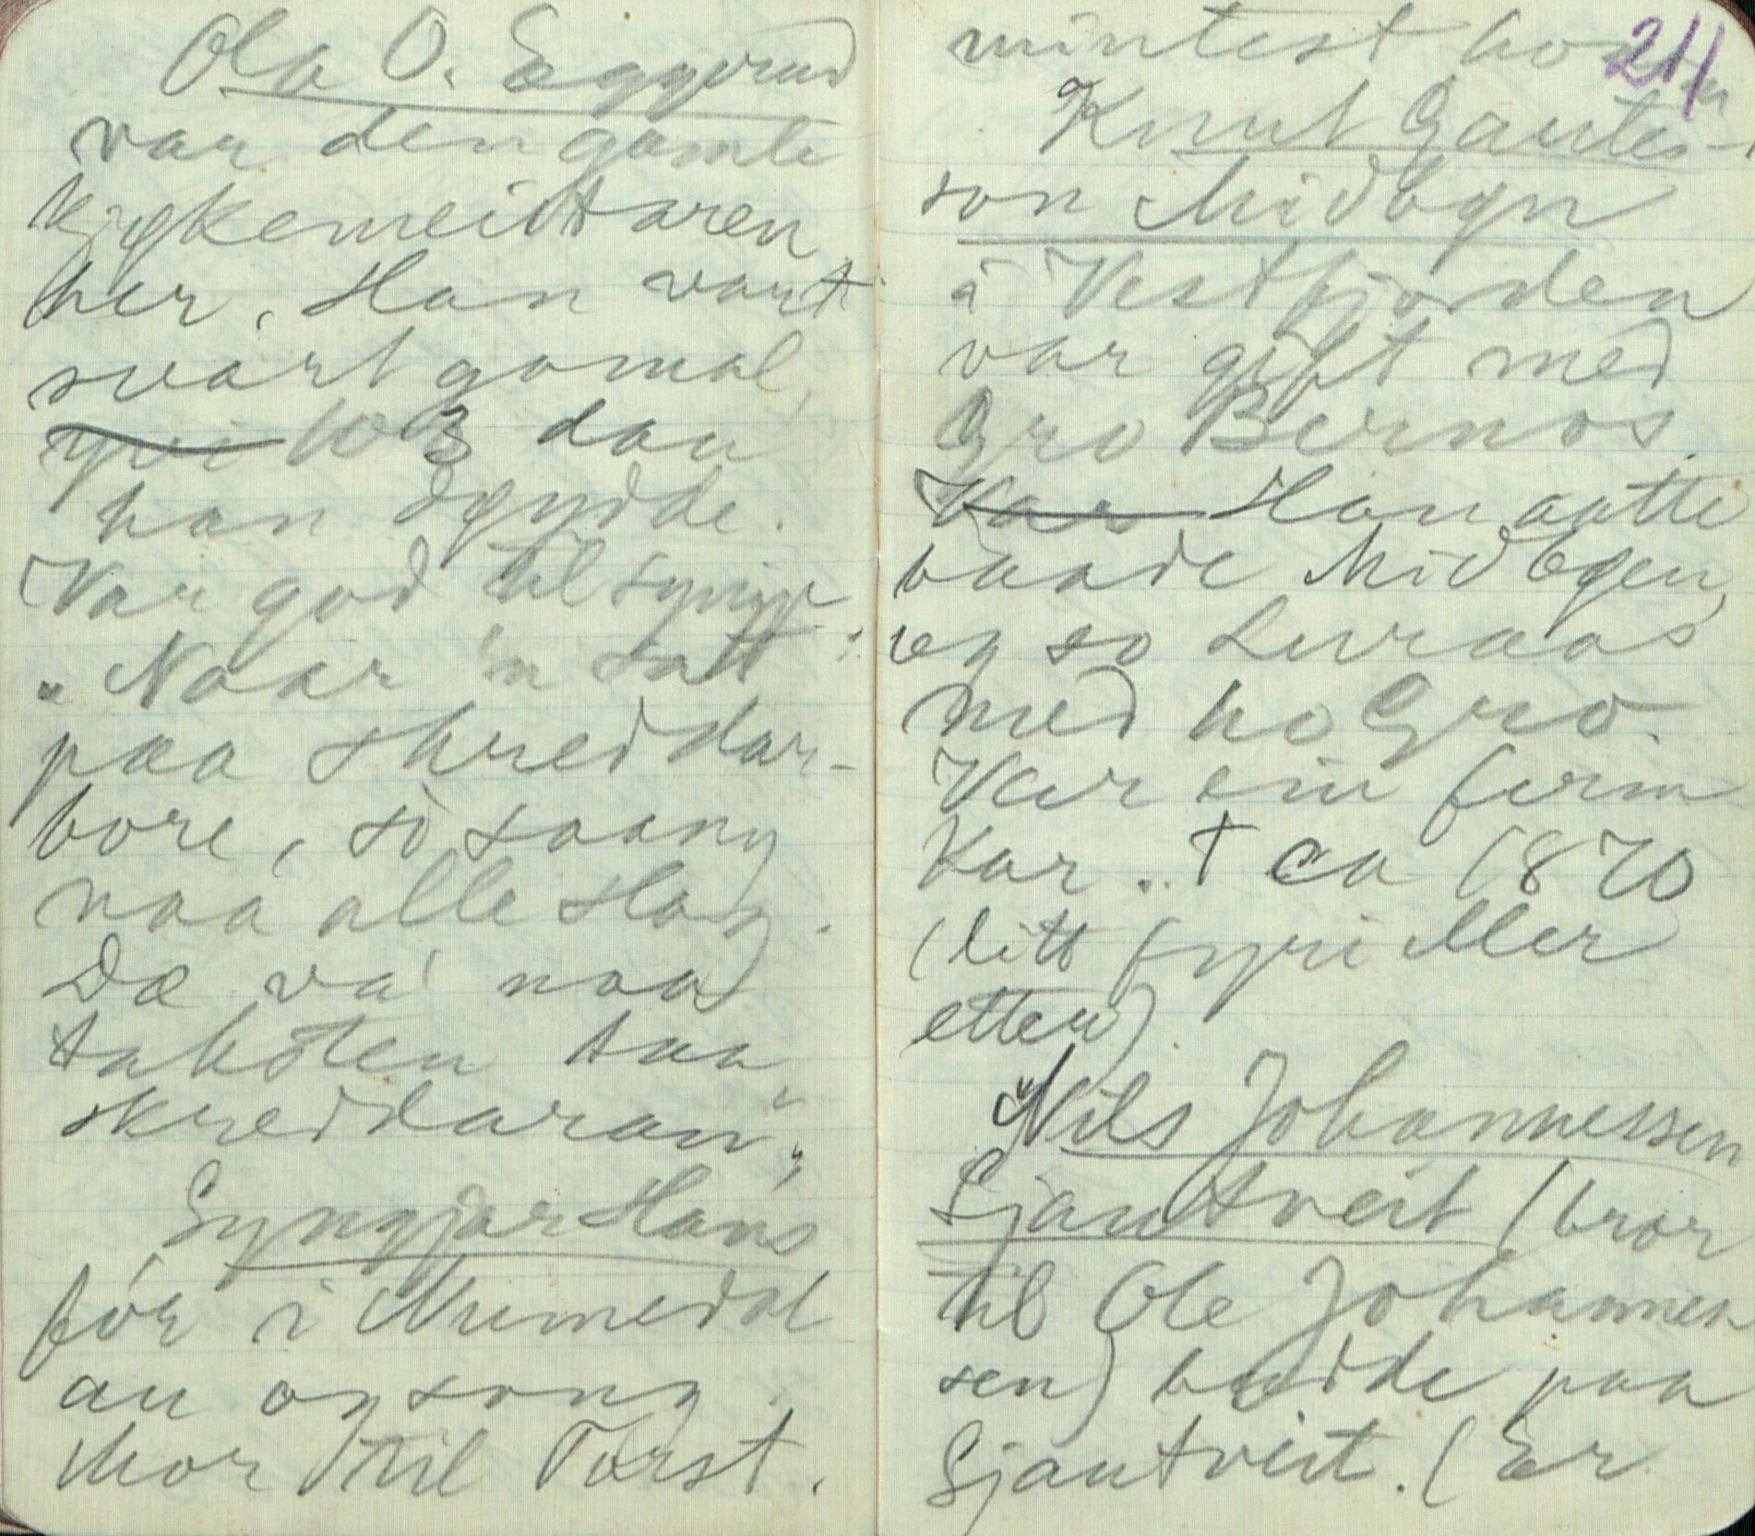 Ola O. Æggerud
var den gamle
kjøkemeistaren
her. Han vart
svært gamal,
yvi 103 dau
han døydde.
Var god til syngje.
„Naar 'n satt
paa skreddar-
bore, so saang
naa alle slag.
Dæ va' naa
taksten taa
skreddaran".
Syngjar Hans
fór i Numedal
au og song.
Mor til Torst.
mintest honom
211
Knut Gautes-
son Midbøen
i Vestfjorden
var gift med
Gro Bernos.
Var Han aatte
baade Midbøen,
og so Luraas
med ho Gro.
Var ein ferm
kar. † ca 1870
(litt fyri eller
etter).
Nils Johannessen
Sjautveit (bror
til Ole Johannes
sen) budde paa
Sjautveit. (Er